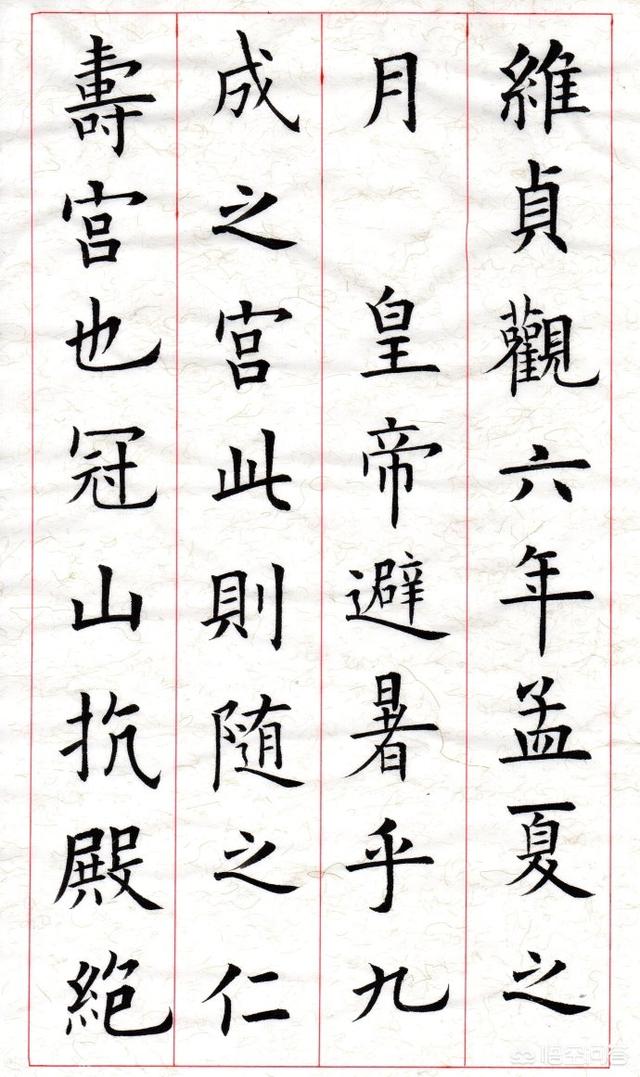 維貞觀六年孟夏之
月　皇帝避暑乎九
成之宮此則随之仁
壽宮也冠山抗殿絶
悟空问答